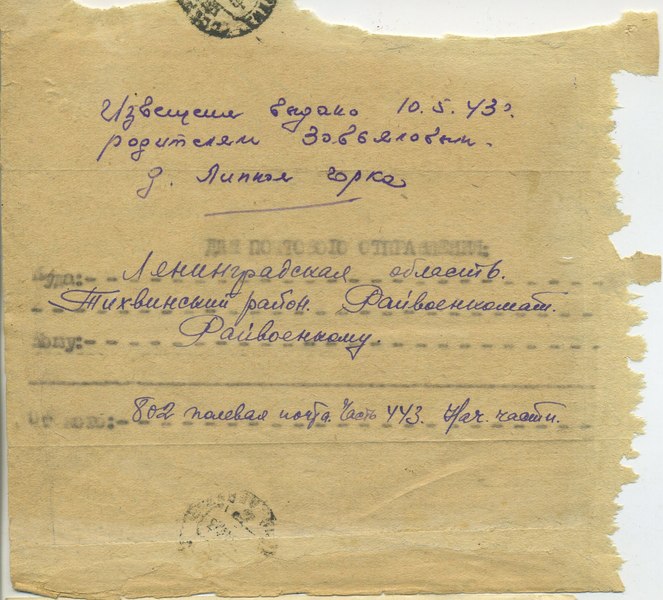 Извещения выдано 10.5.43г.
родителям Завьяловым.
д. Липная Горка
ДЛЯ ПОЧТОВОГО ОТПРАВЛЕНИЯ.
Куда: Ленинградская область.
Тихвинский район. Райвоенкомат.
Кому: Райвоенкому.
От кого: 802 полевая почта. Часть 443. Нач. части.